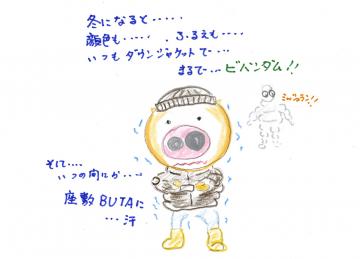 冬になると・・・・・
顔色も・・・・・、ふるえも・・・・
いつもダウンジャケットで・・・
まるで・・・ビバンダム!!
ミシュラン!!
そして・・・・
いつの向にか・・・・
座敷BUTAに
・・・汗